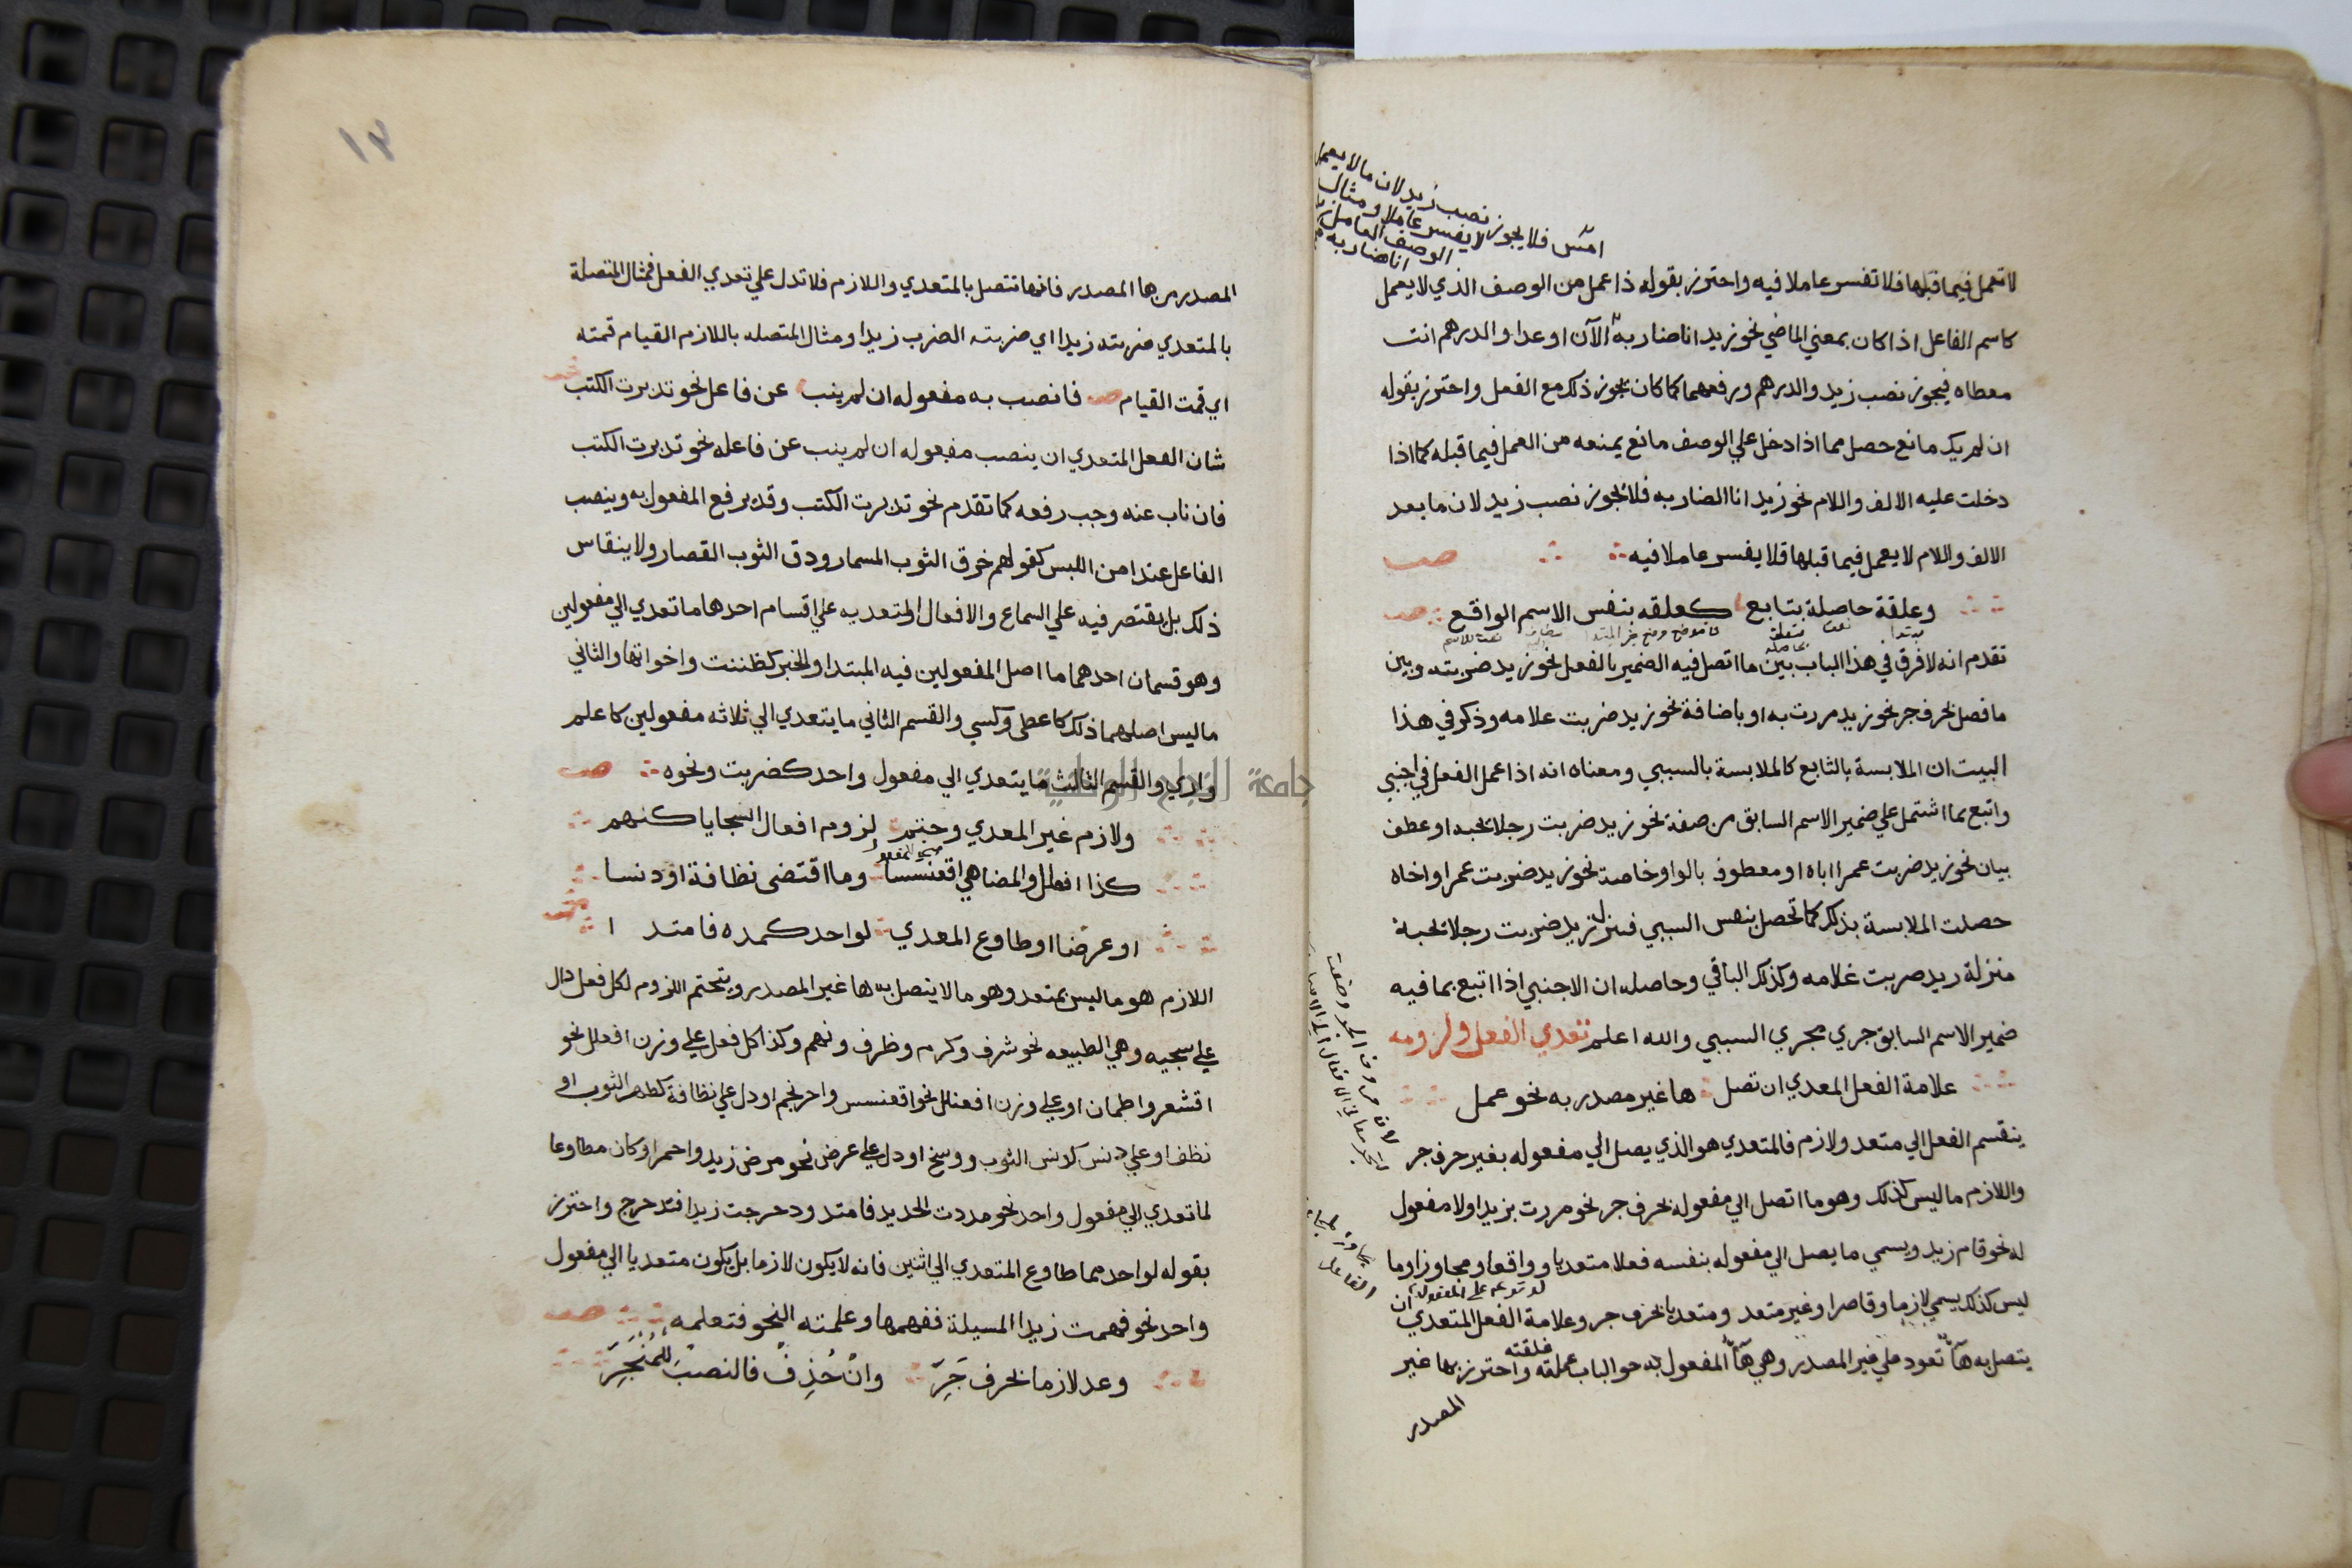 لا تعمل فيما قبلها فلا تفسر عاملا فيه واحترز بقوله ذا عمل من الوصف الذي لا يعمل
كاسم الفاعل اذا كان بمعني الماضي نحو زيد انا ضاربه الآن او عدا والدرهم انت
معطاه فيجوز نصب زيد والدرهم ورفعهما كما كان يجوز ذلك مع الفعل واحترز بقوله
ان لم يك مانع حصل مما اذا دخل علي الوصف مانع يمنعه من العمل فيما قبله كما اذا
دخلت عليه الالف واللام نحو زيد انا الضاربه فلا يجوز نصب زيد لان ما بعد
الالف واللام لا يعمل فيما قبلها فلا يفسر عاملا فيه صـ
وعلقة حاصلة بتابع كعلقه بنفس الاسم الواقع
تقدم انه لا فرق في هذا الباب بين ما اتصل فيه الضمير بالفعل نحو زيد ضربته وبين
ما فصل بحرف جر نحو زيد مررت به او باضافة نحو زيد ضربت علامه وذكر في هذا
البيت ان الملابسة بالتابع كالملابسة بالسببي ومعناه انه اذا عمل الفعل في اجنبي
واتبع بما اشتمل علي ضمير الاسم السابق من صفة نحو زيد ضربت رجلا يحبه او عطف
بيان نحو زيد ضربت عمرا اباه او معطوف بالواو خاصة نحو زيد ضربت عمرا واخاه
حصلت الملابسة بذلك كما تحصل بنفس السببي فنزل زيد ضربت رجلا يحبه
منزلة زيد ضربت غلامه وكذلك الباقي وحاصله ان الاجنبي اذا اتبع بما فيه
ضمير الاسم السابق جري مجري السببي والله اعلم تعدي الفعل ولزومه
علامة الفعل المعدي ان تصل ها غير مصدر به نحو عمل
ينقسم الفعل الي متعد ولازم فالمتعدي هو الذي يصل الي مفعوله بغير حرف جر
واللازم ما ليس كذلك وهو ما اتصل الي مفعوله بحرف جر نحو مررت بزيد او لا مفعول
له نحو قام زيد ويسمي ما يصل الي مفعوله بنفسه فعلا متعديا وواقعا ومجاوزا وما
ليس كذلك يسمي لازما وقاصرا وغير متعد ومتعديا بحرف جر وعلامة الفعل المتعدي ان
يتصل به هآ تعود علي غير المصدر وهي هآ المفعول به نحو الباب غلقته واحترز بها غير
المصدر
امس فلا يجوز نصب زيد لان ما لا يعمل
لا يفسر عاملا ومثال
الوصف العامل
انا ضاربه
١٣
المصدر من ها المصدر فانها تتصل بالمتعدي واللازم فلا تدل علي تعدي الفعل فمثال المتصلة
بالمتعدي ضربته زيدا اي ضربته الضرب زيدا ومثال المتصله باللازم القيام قمته
اي قمت القيام صـ فانصب به مفعوله ان لم ينب عن فاعل نحو تدبرت الكتب
شان الفعل المتعدي ان ينصب مفعوله ان لم ينب عن فاعله نحو تدبرت الكتب
فان ناب عنه وجب رفعه كما تقدم نحو تدبرت الكتب وقد يرفع المفعول به وينصب
الفاعل عند امن اللبس كقولهم خرق الثوب المسمار ودق الثوب القصار ولا ينقاس
ذلك بل يقتصر فيه علي السماع والافعال المتعديه علي اقسام احدها ما تعدي الي مفعولين
وهو قسمان احدهما ما اصل المفعولين فيه المبتدا والخبر كظننت واخواتها والثاني
ما ليس اصلهما ذلك كاعطي وكسي والقسم الثاني ما يتعدي الي ثلاثه مفعولين كاعلم
واري والقسم الثالث ما يتعدي الي مفعول واحد كضربت ونحوه صـ
ولازم غير المعدي وحتم لزوم افعال السجايا كنهم
كذا افعلل والمضاهي اقعنسسا وما اقتضى نظافة او دنسا
او عرضا او طاوع المعدي لواحد كمده فامتدا
اللازم هو ما ليس بمتعد وهو ما لا يتصل به ها غير المصدر ويتحتم اللزوم لكل فعل دال
علي سجيه وهي الطبيعه نحو شرف وكرم وظرف ونهم وكذا كل فعل علي وزن افعلل نحو
اقشعر واطمان او علي وزن افعنلل نحو اقعنسس واحرنجم او دل علي نظافة كطهر الثوب او
نظف او علي دنس كدنس الثوب ووسخ او دل علي عرض نحو مرض زيد واحمر او كان مطاوعا
لما تعدي الي مفعول واحد نحو مددت الحديد فامتد ودحرجت زيدا فتدحرج واحترز
بقوله لواحد مما طاوع المتعدي الي اثنين فانه لا يكون لازما بل يكون متعديا الي مفعول
واحد نحو فهمت زيدا المسيلة ففهمها وعلمته النحو فتعلمه صـ
وعد لازما بحرف جَرِّ وانْ حُذِفْ فالنصبُ للمُنْجَرِّ
جامعة الملك